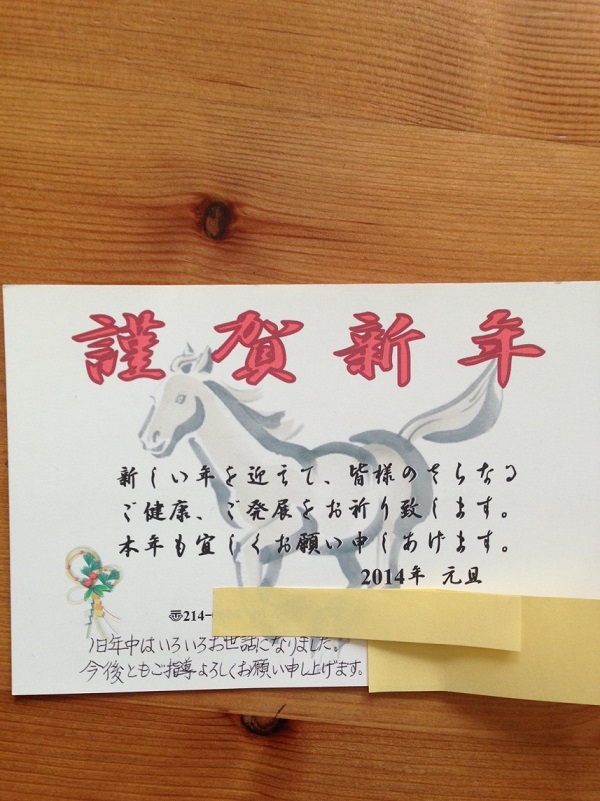 謹賀新年
新しい年を迎えて、皆様のさらなる
ご健康、ご発展をお祈り致します。
本年も宜しくお願い申しあげます。
2014年 元旦
〠214-
旧年中はいろいろお世話になりました。
今後ともご指導よろしくお願い申し上げます。